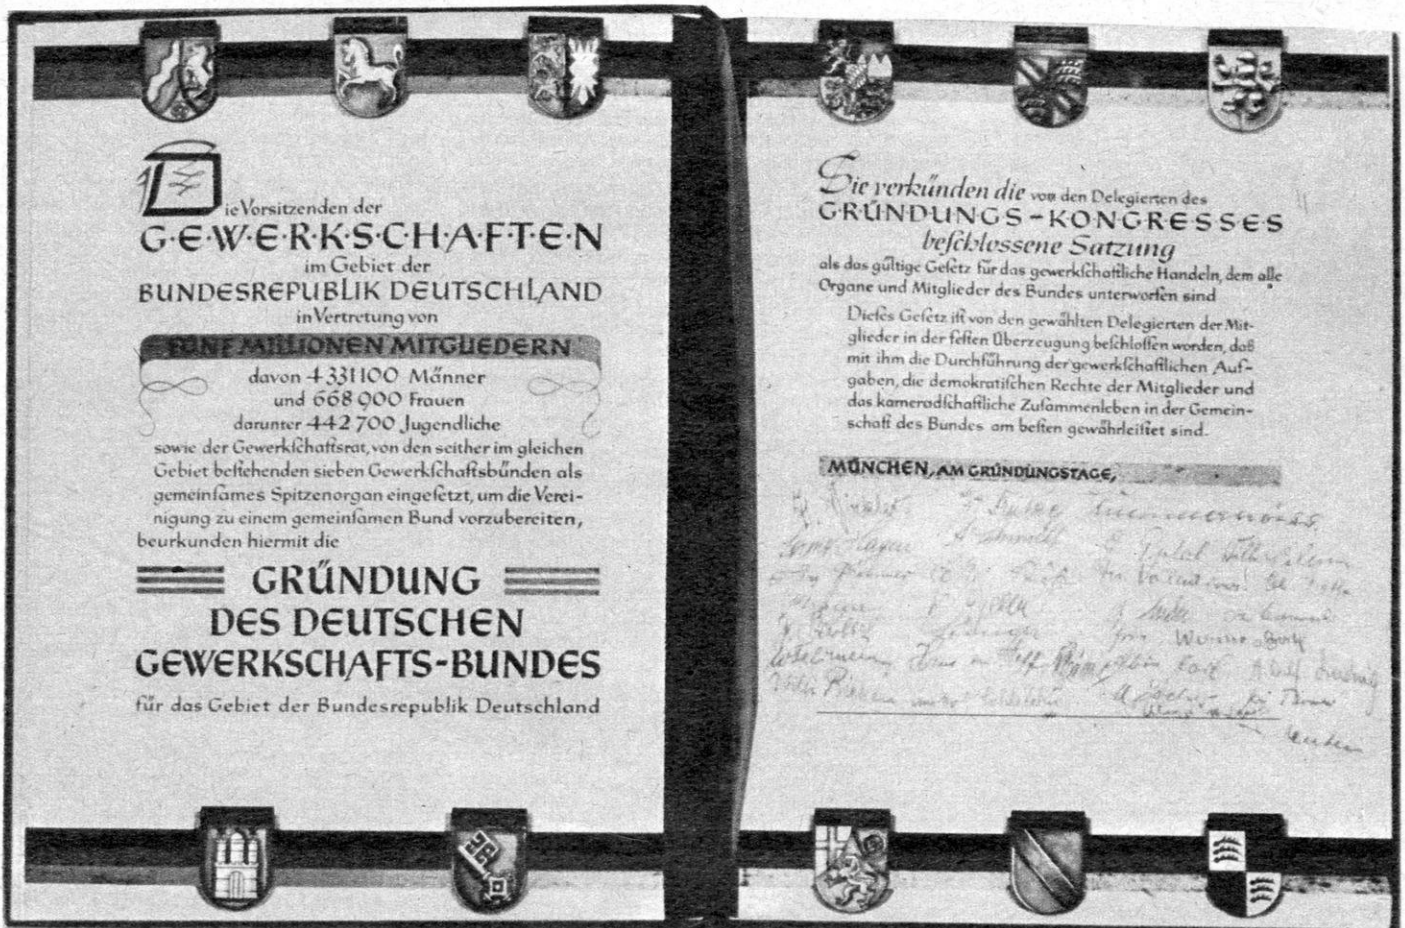 Die Vorsitzenden der
G·E·W·E·R·K·S·C·H·A·F·T·E·N
im Gebiet der
BUNDESREPUBLIK DEUTSCHLAND
in Vertretung von
FÜNF MILLIONEN MITGLIEDERN
davon 4 331100 Männer
und 668 900 Frauen
darunter 442 700 Jugendliche
sowie der Gewerkſchaftsrat, von den seither im gleichen
Gebiet beſtehenden sieben Gewerkſchaftsbünden als
gemeinſames Spitzenorgan eingeſetzt, um die Verei-
nigung zu einem gemeinſamen Bund vorzubereiten,
beurkunden hiermit die
GRÜNDUNG
DES DEUTSCHEN
GEWERKSCHAFTS-BUNDES
für das Gebiet der Bundesrepublik Deutschland
Sie verkünden die von den Delegierten des
GRÜNDUNGS-KONGRESSES
beſchlossene Satzung
als das gültige Geſetz für das gewerkſchaftliche Handeln, dem alle
Organe und Mitglieder des Bundes unterworfen sind
Dieſes Geſetz iſt von den gewählten Delegierten der Mit-
glieder in der feſten Überzeugung beſchloſſen worden, daß
mit ihm die Durchführung der gewerkſchaftlichen Auf-
gaben, die demokratiſchen Rechte der Mitglieder und
das kameradſchaftliche Zuſammenleben in der Gemein-
schaft des Bundes am beſten gewährleiſtet sind.
MÜNCHEN, AM GRÜNDUNGSTAGE,